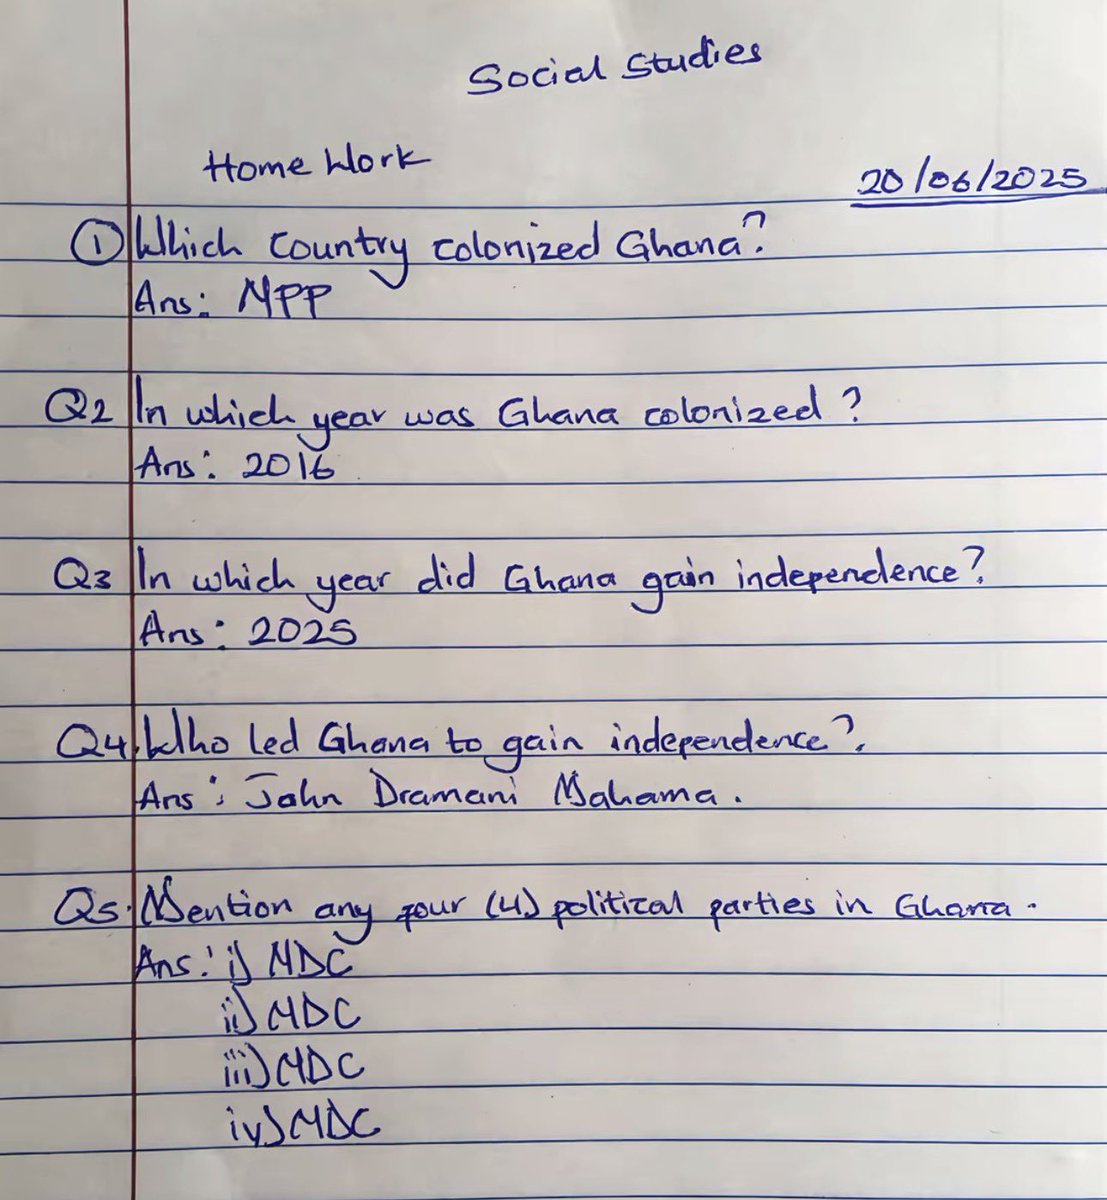 Social Studies
Home Work
20/06/2025
① Which Country colonized Ghana?
Ans: NPP
Q2 In which year was Ghana colonized?
Ans: 2016
Q3 In which year did Ghana gain independence?
Ans: 2025
Q4. Who led Ghana to gain independence?
Ans: John Dramani Mahama.
Q5. Mention any four (4) political parties in Ghana.
Ans: i) NDC
ii) NDC
iii) NDC
iv) NDC